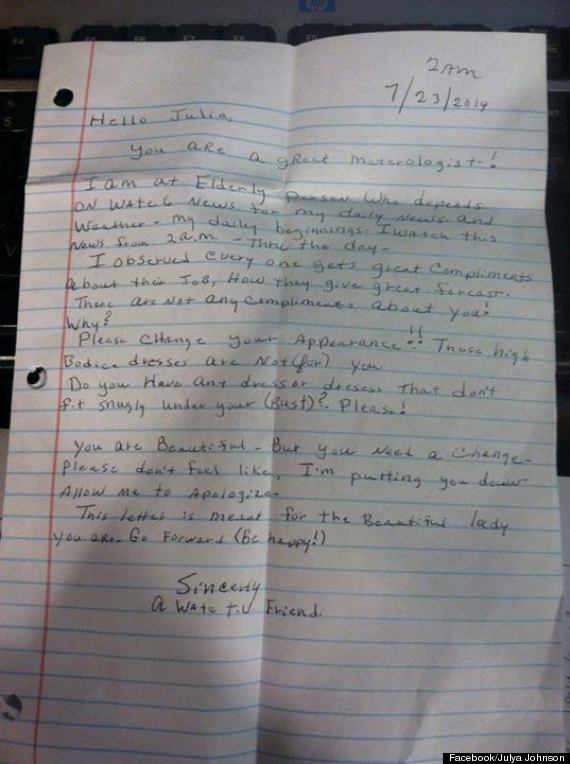 2AM
7/23/2014
Hello Julia,
You are a great meterologist!
I am at Elderly person who depends
ON WATE6 News for my daily News and
Weather. my daily beginnings. I watch this
News from 2 a.m. - Thru the day-
I observed every one gets great compliments
about their Job, How they give great forcast.
There are Not any compliments about you!
Why?
Please change your Appearance!! Those high
Bodice dresses are Not (for) you
Do you Have any dress or dresess That don't
fit snugly under your (Bust)? Please!
You are Beautiful - But you need a change-
Please don't feel like, I'm putting you down-
Allow me to Apologize-
This letter is meant for the Beautiful lady
you are. Go Forward (Be happy!)
Sincerly
a WATE T.V. Friend.
Facebook/Julya Johnson